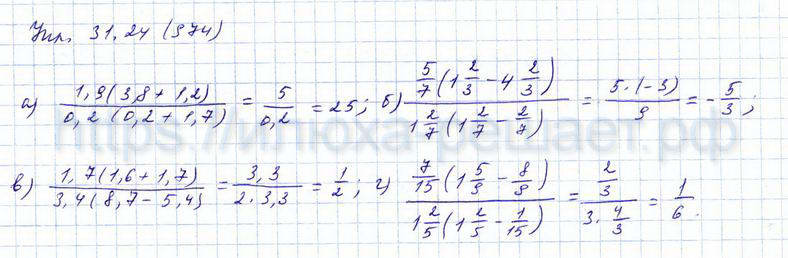 Упр. 31.24 (974)
а) 1,9(3,8+1,2) / 0,2 (0,2+1,7) = 5 / 0,2 = 25; б) 5/7(1 2/3 - 4 2/3) / 1 2/7(1 2/7 - 2/7) = 5·(-3) / 9 = -5/3;
в) 1,7(1,6+1,7) / 3,4(8,7-5,4) = 3,3 / 2·3,3 = 1/2; г) 7/15(1 5/9 - 8/9) / 1 2/5(1 2/5 - 1/15) = 2/3 / 3·4/3 = 1/6.
https://илюха-решает.рф